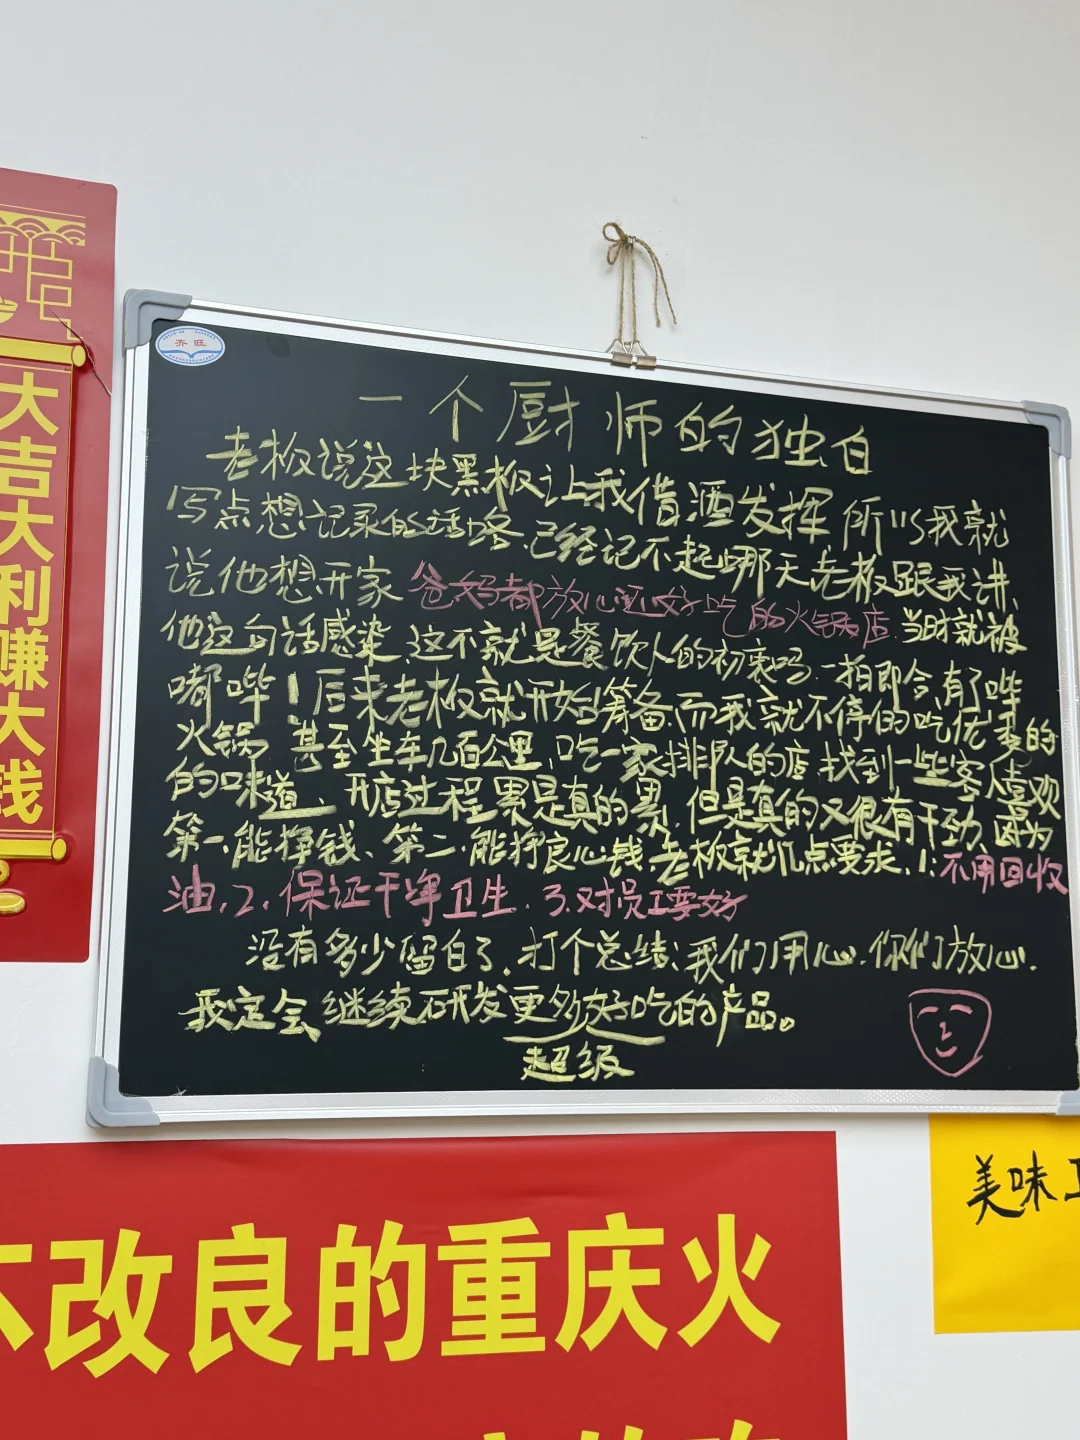 大吉大利赚大钱
齐旺
一个厨师的独白
老板说这块黑板让我借酒发挥 所以我就
写点想记录的话咯.已经记不起哪天老板跟我讲,
说他想开家 爸妈都放心且好吃的火锅店.当时就被
他这句话感染,这不就是餐饮人的初衷吗.一拍即合,有了哔
嘟哔!后来老板就开始筹备,而我就不停的吃优秀的
火锅 甚至坐车几百公里,吃一家排队的店 找到一些客人喜欢
的味道、开店过程累是真的累,但是真的又很有干劲,因为
第一.能挣钱、第二.能挣良心钱,老板就几点要求.1:不用回收
油,2,保证干净卫生.3.对员工要好
没有多少留白了,打个总结:我们用心.你们放心.
我定会继续研发更多好吃的产品。
超级
改良的重庆火
美味